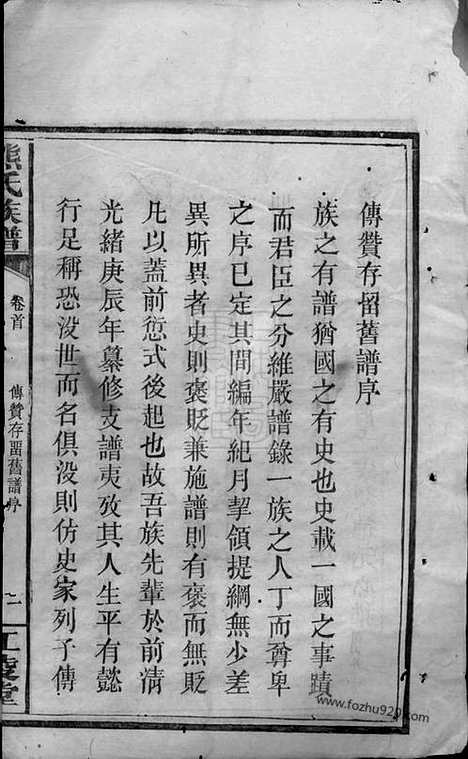 傳贊存畱舊譜序
族之有譜猶國之有史也史載一國之事蹟
而君臣之分維嚴譜錄一族之人丁而尊卑
之序已定其間編年紀月挈領提綱無少差
異所異者史則褒貶兼施譜則有褒而無貶
凡以蓋前愆式後起也故吾族先輩於前淸
光緒庚辰年纂修支譜夷攷其人生平有懿
行足稱恐没世而名俱没則仿史家列子傳
熊氏族譜
卷首
傳贊存畱舊譜序
江陵堂
www.fozhu920.com